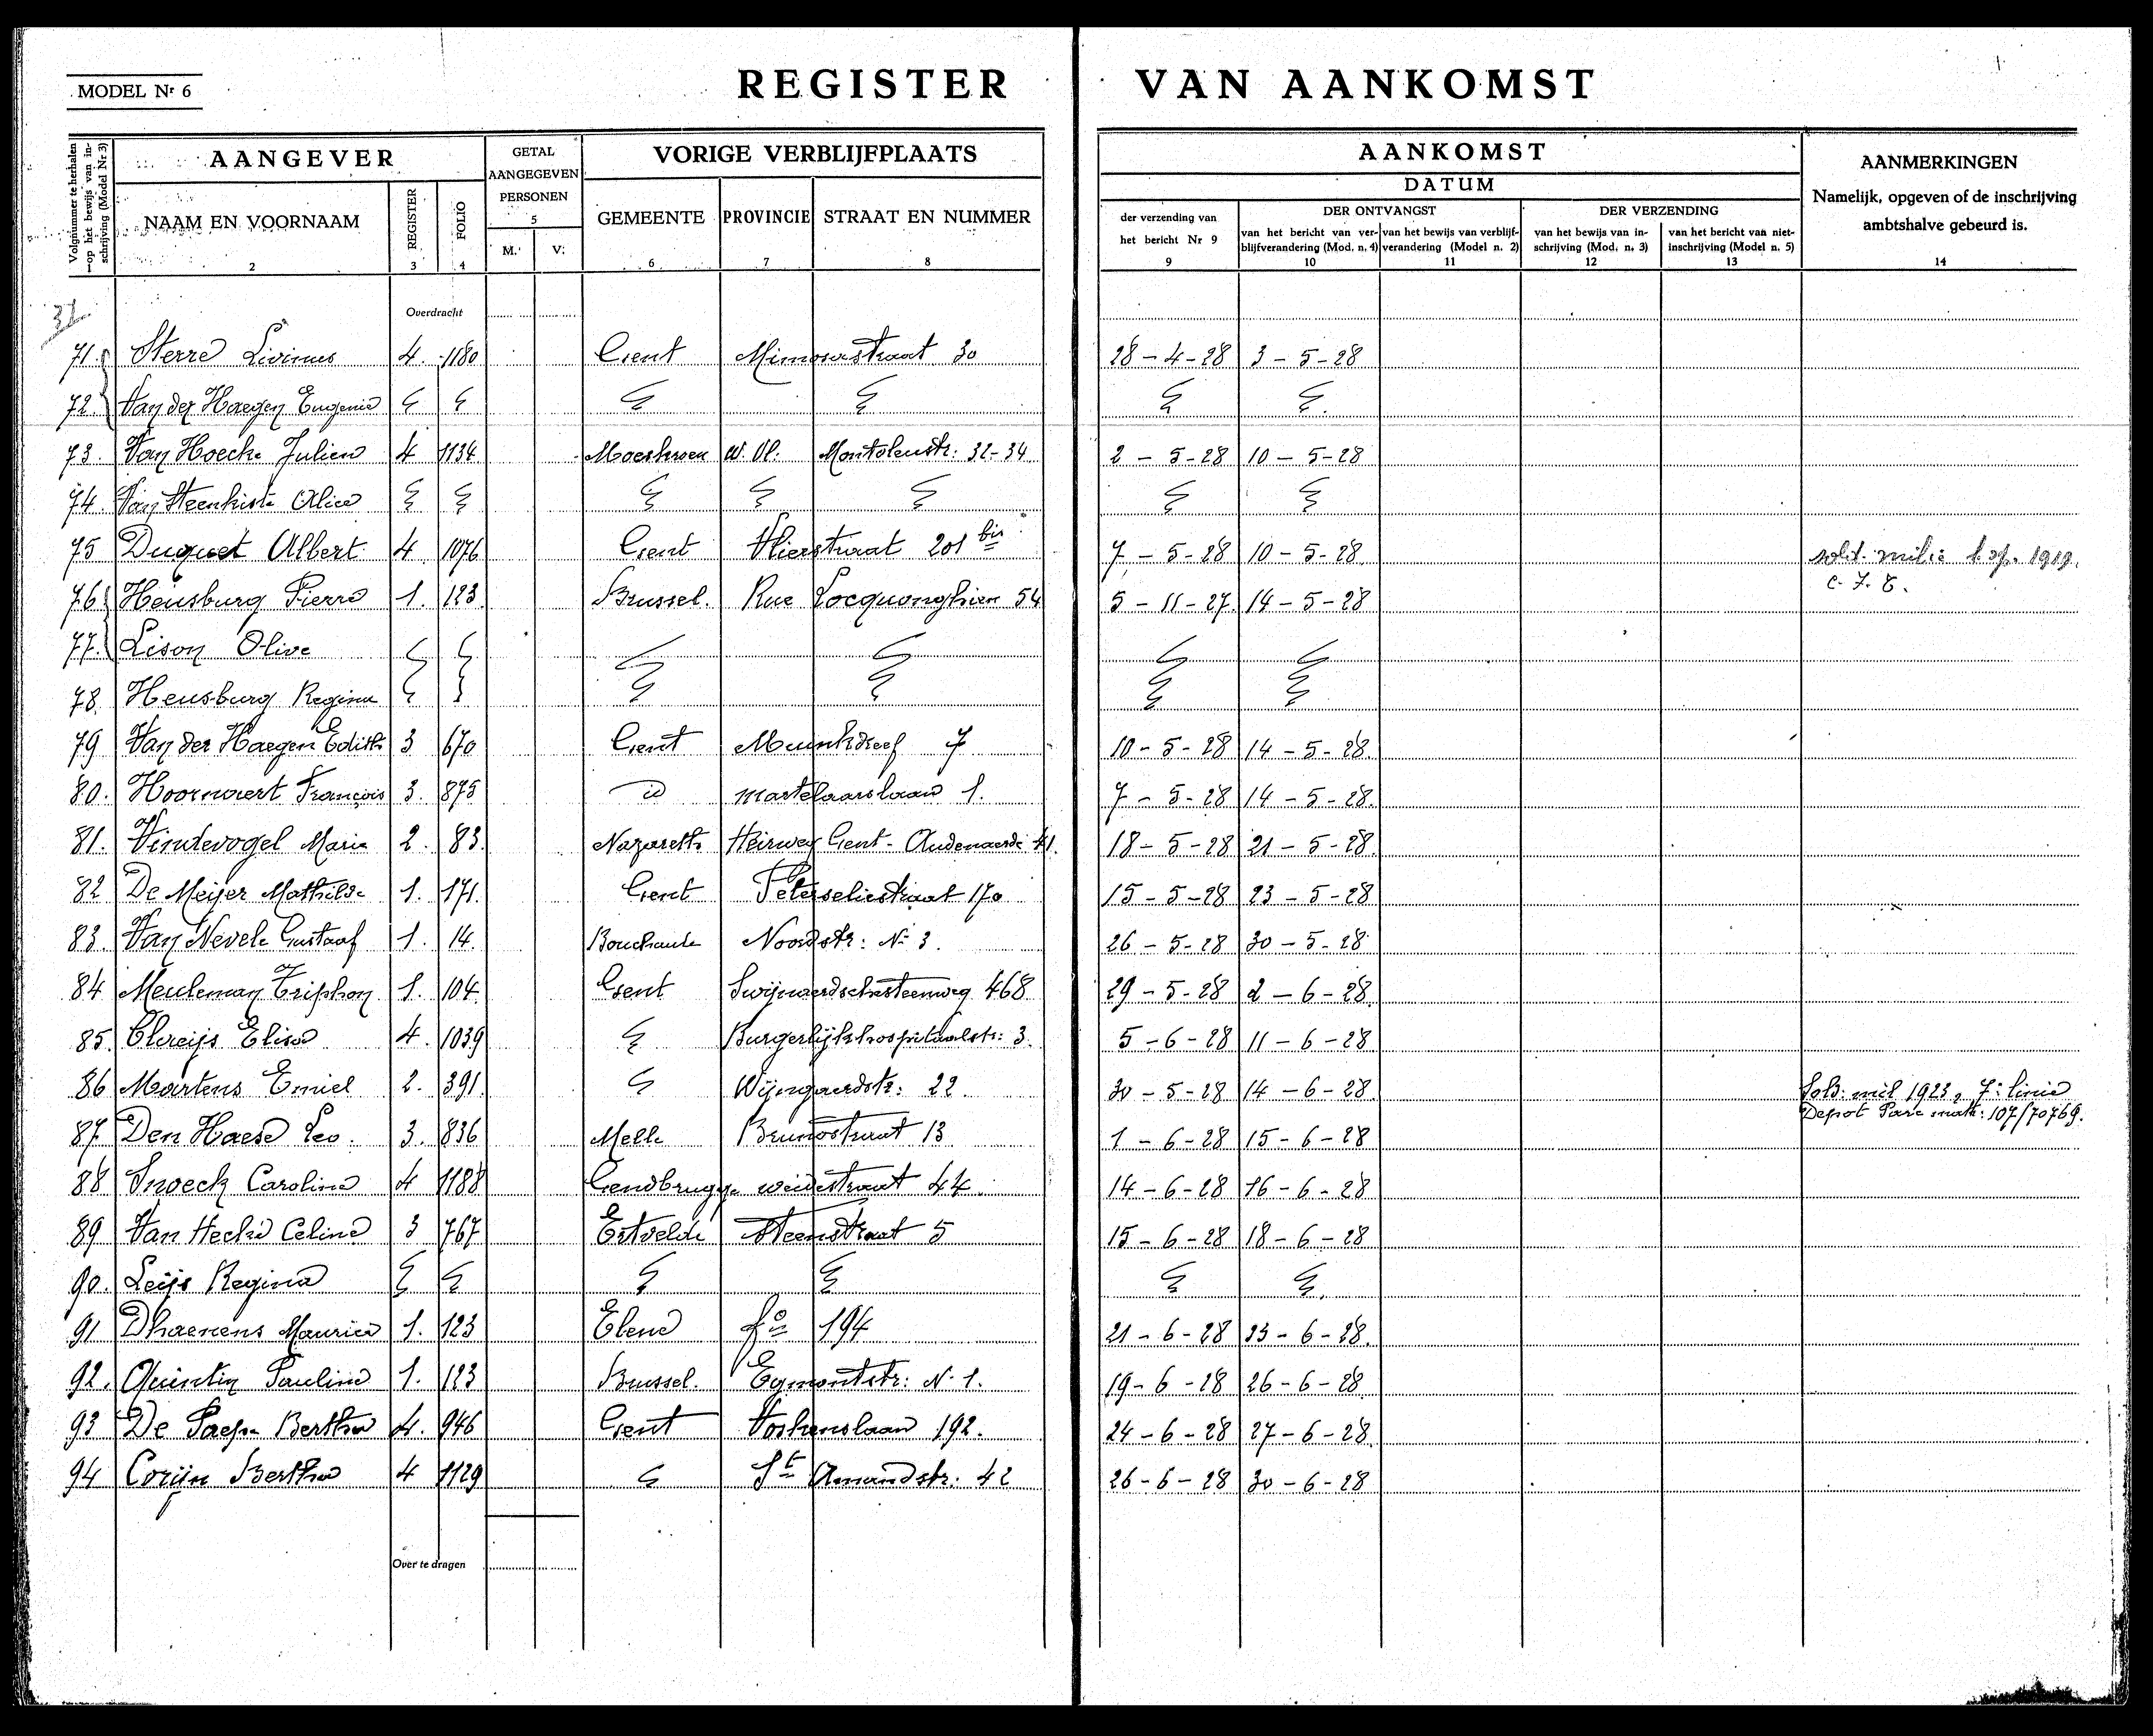 MODEL Nr 6
REGISTER VAN AANKOMST
Volgnummer te herhalen op het bewijs van inschrijving (Model Nr 3)
AANGEVER
GETAL AANGEGEVEN PERSONEN
VORIGE VERBLIJFPLAATS
AANKOMST
DATUM
AANMERKINGEN
Namelijk, opgeven of de inschrijving ambtshalve gebeurd is.
NAAM EN VOORNAAM REGISTER FOLIO M. V. GEMEENTE PROVINCIE STRAAT EN NUMMER
der verzending van het bericht Nr 9
DER ONTVANGST
van het bericht van verblijfverandering (Mod. n. 4) van het bewijs van verblijfverandering (Model n. 2)
DER VERZENDING
van het bewijs van inschrijving (Mod. n. 3) van het bericht van niet-inschrijving (Model n. 5)
1 2 3 4 5 6 7 8 9 10 11 12 13 14
Overdracht
71. Sterre Livinus 4. 1180 Gent Mimosastraat 30 28-4-28 3-5-28
72. Van der Haegen Eugenie
73. Van Hoecke Julien 4 1134 Moeskroen W. Vl. 32-34 2-5-28 10-5-28
74. Van Steenkiste Alice
75 Duquet Albert 4. 1076 Gent Vlierstraat 201 bis 7-5-28 10-5-28 1919.
76. Heusburg Pierre 1. 123 Brussel. Rue Locquenghien 54 5-11-27. 14-5-28
77. Lison Olive
78. Heusburg Regina
79 Van der Haegen Edith 3 670 Gent Muinkdreef 7 10-5-28 14-5-28
80. Hoornaert François 3. 875 id Martelaarslaan 1. 7-5-28 14-5-28.
81. Vindevogel Marie 2. 83. Nazareth Heirweg Gent-Audenaarde 41. 18-5-28 21-5-28
82 De Meijer Mathilde 1. 171. Gent Peterseliestraat 170 15-5-28 23-5-28
83. Van Nevele Gustaaf 1. 14. Bouchaute Noordstr: N: 3. 26-5-28 30-5-28
84 Meuleman Triphon 1. 104. Gent Swijnaerdschesteenweg 468 29-5-28 2-6-28
85. Clreijs Elisa 4. 1039 Burgerlijkhospitaalstr: 3. 5-6-28 11-6-28
86 Martens Emiel 2. 391. Wijngaerdstr: 22. 30-5-28 14-6-28 Sold: mil 1923, 7: linie
Depot Parc matr: 107/70769.
87. Den Haese Leo. 3. 836 Melle Brunostraat 13 1-6-28 15-6-28
88 Snoeck Carolina 4 1188 Gendbrugge weidestraat 44. 14-6-28 16-6-28
89 Van Hecke Celine 3 767 Ertvelde Steenstraat 5 15-6-28 18-6-28
90. Leijs Regina
91 Dhaenens Maurice 1. 123 Elene fo 194 21-6-28 23-6-28.
92. Quintin Pauline 1. 123 Brussel. Egmontstr: N. 1. 19-6-28 26-6-28
93 De Paepe Bertha 4. 946 Gent Voskenslaan 192. 24-6-28 27-6-28
94 Corijn Bertha 4 1129 St Amandstr: 42 26-6-28 30-6-28
Over te dragen